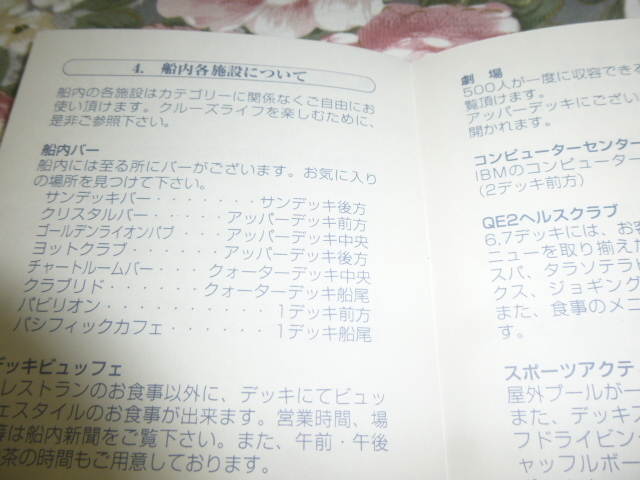 4. 船内各施設について
船内の各施設はカテゴリーに関係なくご自由にお
使い頂けます。クルーズライフを楽しむために、
是非ご参照下さい。
船内バー
船内には至る所にバーがございます。お気に入り
の場所を見つけて下さい。
サンデッキバー・・・・・・・サンデッキ後方
クリスタルバー・・・・・アッパーデッキ前方
ゴールデンライオンパブ・・アッパーデッキ中央
ヨットクラブ・・・・・・アッパーデッキ後方
チャートルームバー・・・クォーターデッキ中央
クラブリド・・・・・・クォーターデッキ船尾
パビリオン・・・・・・・・・・1デッキ前方
パシフィックカフェ・・・・・・1デッキ船尾
デッキビュッフェ
レストランのお食事以外に、デッキにてビュッ
ェスタイルのお食事が出来ます。営業時間、場
等は船内新聞をご覧下さい。また、午前・午後
茶の時間もご用意しております。
劇 場
500人が一度に収容できる
覧頂けます。
アッパーデッキにござい
開かれます。
コンピューターセンター
IBMのコンピューター
(2デッキ前方)
QE2ヘルスクラブ
6,7デッキには、お客
ニューを取り揃えた
スパ、タラソテラピ
クス、ジョギング
また、食事のメニ
す。
スポーツアクティ
屋外プールが一
また、デッキ
フドライビン
ャッフルボー